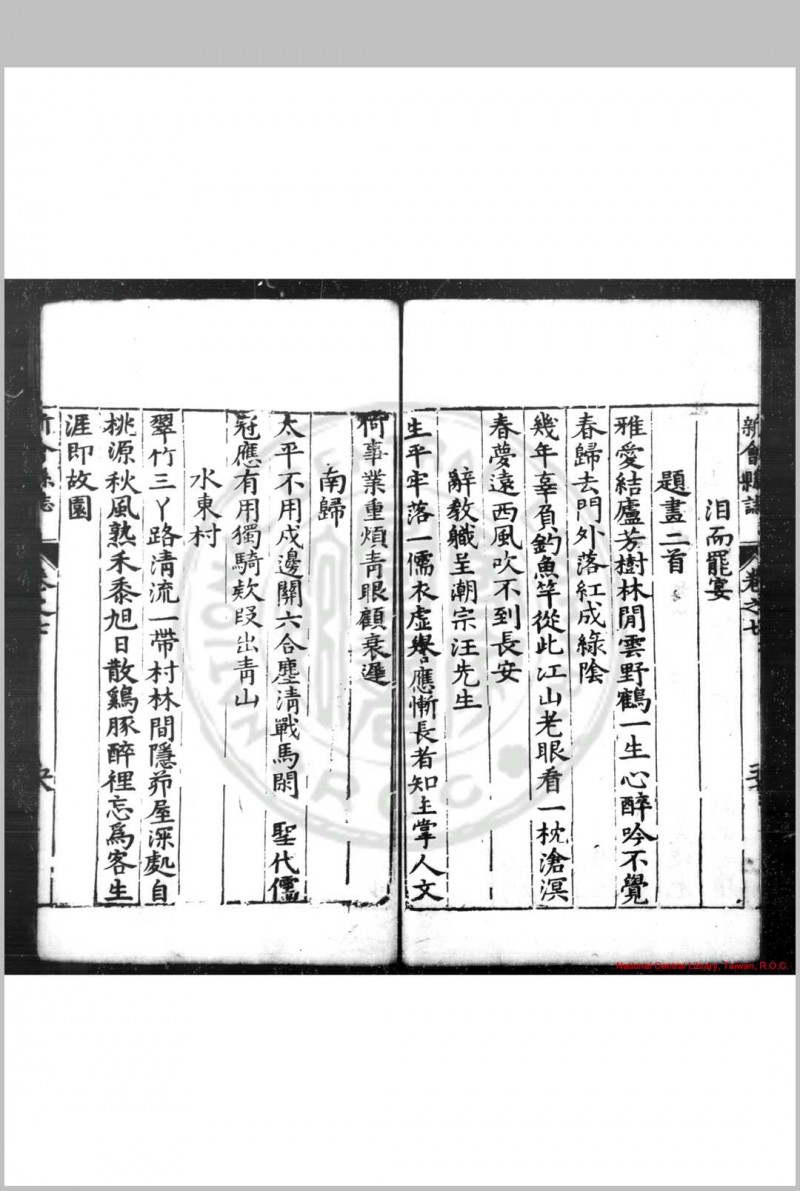 新會縣誌 卷之七
泪而罷宴
題畫二首
雅愛結廬芳樹林閒雲野鶴一生心醉吟不覺
春歸去門外落紅成綠陰
幾年辜負釣魚竿從此江山老眼看一枕滄溟
春夢遠西風吹不到長安
辭教軄呈潮宗汪先生
生平牢落一儒衣虛譽應慚長者知主掌人文
何事業重煩青眼顧衰遲
南歸
太平不用戍邊關六合塵清戰馬閑 聖代儒
冠應有用獨騎欵段出青山
水東村
翠竹三丫路清流一帶村林間隱茆屋深處自
桃源秋風熟禾黍旭日散鷄豚醉裡忘爲客生
涯即故園
National Central Library, Taiwan, R.O.C.